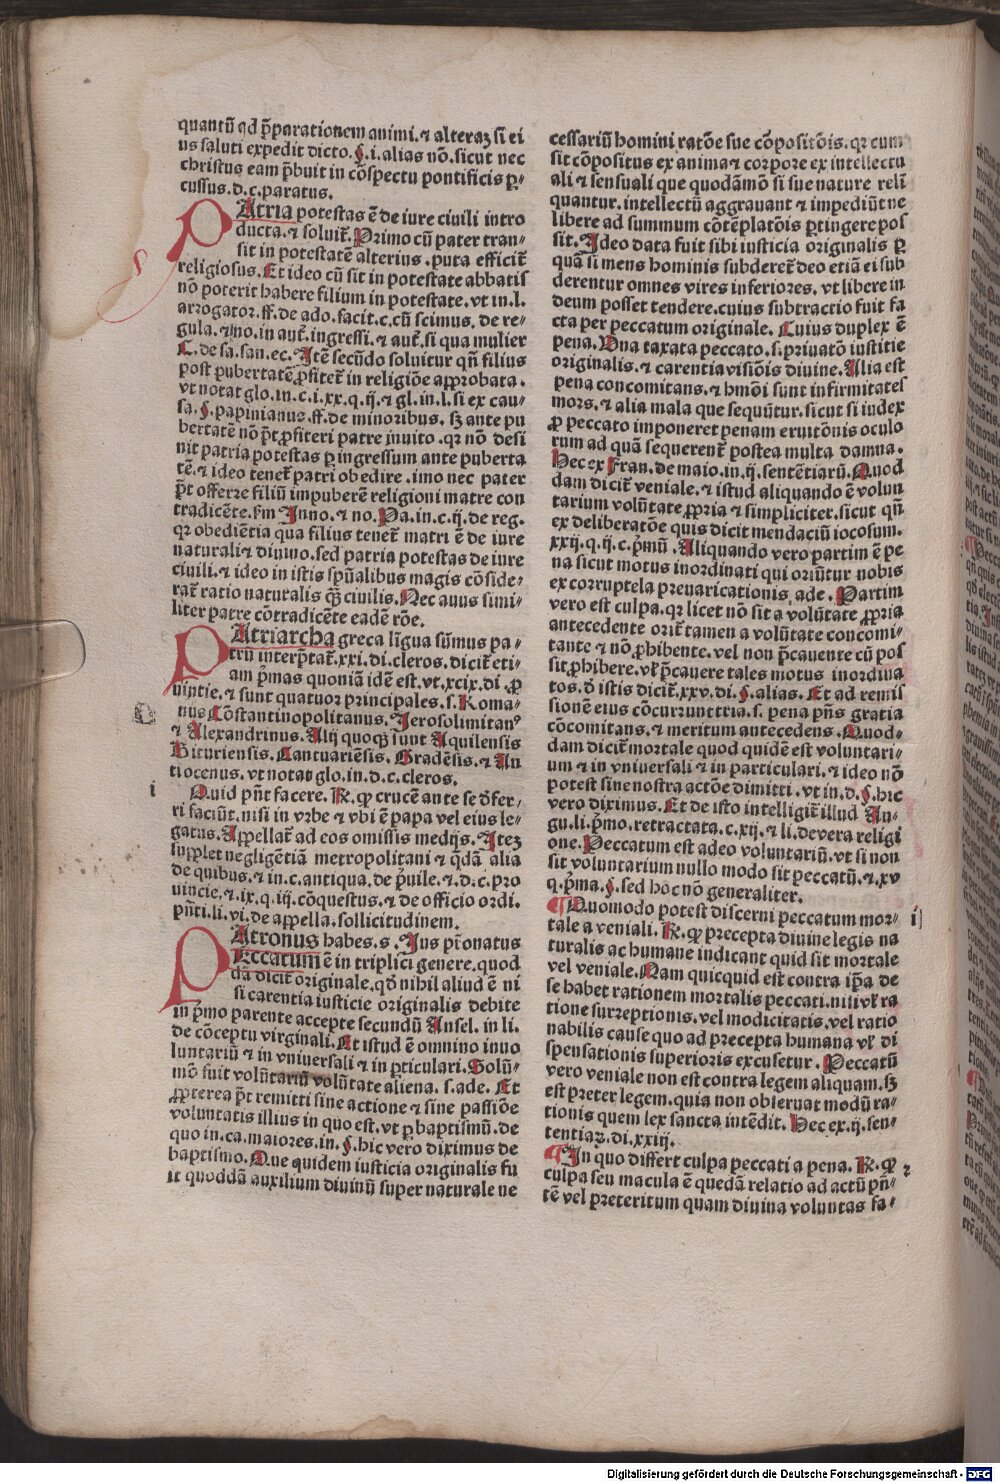 quantū qd p̄parationem animi. ⁊ alteraꝫ si ei
us saluti expedit dicto. §. i. alias nō. sicut nec
christus eam p̄buit in cōspectu pontificis ꝑ-
cussus. d. c. paratus.
PAtria potestas ē de iure ciuili intro
ducta. ⁊ soluit̄. Primo cū pater tran-
sit in potestatē alterius. puta efficit̄
religiosus. Et ideo cū sit in potestate abbatis
nō poterit habere filium in potestate. vt in. l.
arrogator. ff. de ado. facit. c. cū scimus. de re-
gula. ⁊ imo. in aut̄. ingressi. ⁊ aut̄. si qua mulier
C. de sa. san. ec. Itē secūdo soluitur qn̄ filius
post pubertatē ꝓfitet̄ in religiōe approbata.
vt notat glo. in. c. i. xx. q. ij. ⁊ gl. in. l. si ex cau-
sa. §. papinianus. ff. de minoribus. Sꝫ ante pu
bertatē nō p̄t ꝓfiteri patre inuito. qr nō desi
nit patria potestas ꝑ ingressum ante puberta
tē. ⁊ ideo tenet̄ patri obedire. imo nec pater
p̄t offerre filiū impuberē religioni matre con
tradicēte. fm Inno. ⁊ no. Pa. in. c. ij. de reg.
qr obediētia qua filius tenet̄ matri ē de iure
naturali ⁊ diuino. sed patria potestas de iure
ciuili. ⁊ ideo in istis spūalibus magis cōside-
rat̄ ratio naturalis qꝫ ciuilis. Nec auus simi-
liter patre cōtradicēte eadē rōe.
PAtriarcha greca līgua sūmus pa-
trū interp̄tat̄. xxi. di. cleros. dicit̄ eti-
am p̄mas quoniā idē est. vt. xcix. di. ꝓ
uintie. ⁊ sunt quatuor principales. s. Roma-
nus Cōstantinopolitanus. Ierosolimitanꝰ
⁊ Alexandrinus. Alij quoqꝫ sunt Aquilensis
Bituriensis. Cantuariēsis. Gradēsis. ⁊ An
tiocenus. vt notat glo. in. d. c. cleros.
i
Quid pn̄t facere. R. ꝙ crucē ante se d̄fer-
ri faciūt. nisi in vrbe ⁊ vbi ē papa vel eius le-
gatus. Appellat̄ ad eos omissis medijs. Iteꝫ
supplet negligētiā metropolitani ⁊ q̄dā alia
de quibus. ⁊ in. c. antiqua. de p̄uile. ⁊. d. c. pro
uincie. ⁊. ix. q. iij. cōquestus. ⁊ de officio ordi.
pn̄ti. li. vi. de appella. sollicitudinem.
PAtronus habes. s. Ius pr̄onatus
PEccatum ē in triplici genere. quod
dā dicit̄ originale. qd̄ nihil aliud ē ni
si carentia iusticie originalis debite
in p̄mo parente accepte secundū Ansel. in li.
de cōceptu virginali. Et istud ē omnino inuo
luntariū ⁊ in vniuersali ⁊ in ꝑticulari. Solū-
mō fuit volūtariū volūtate aliena. s. ade. Et
ꝓpterea p̄t remitti sine actione ⁊ sine passiōe
voluntatis illius in quo est. vt ꝑ baptismū. de
quo in. ca. maiores. in. §. hic vero diximus de
baptismo. Que quidem iusticia originalis fu
it quoddā auxilium diuinū super naturale ne
cessariū homini ratōe sue cōpositōis. qr cum
sit cōpositus ex anima ⁊ corpore ex intellectu
ali ⁊ sensuali que quodāmō si sue nature reli
quantur. intellectū aggrauant ⁊ impediūt ne
libere ad summum cōtēplatōis ꝑtingere pos
sit. Ideo data fuit sibi iusticia originalis ꝑ
quā si mens hominis subderet̄ deo etiā ei sub
derentur omnes vires inferiores. vt libere in
deum posset tendere. cuius subtractio fuit fa
cta per peccatum originale. Cuius duplex ē
pena. Vna taxata peccato. s. priuatō iustitie
originalis. ⁊ carentia visiōis diuine. Alia est
pena concomitans. ⁊ hmōi sunt infirmitates
mors. ⁊ alia mala que sequūtur. sicut si iudex
ꝓ peccato imponeret penam eruitōnis oculo
rum ad quā sequerent̄ postea multa damna.
Hec ex Fran. de maio. in. ij. sentētiarū. Quod
dam dicit̄ veniale. ⁊ istud aliquando ē volun
tarium volūtate ꝓpria ⁊ simpliciter. sicut qn̄
ex deliberatōe quis dicit mendaciū iocosum.
xxij. q. ij. c. p̄mū. Aliquando vero partim ē pe
na sicut motus inordinati qui oriūtur nobis
ex corruptela preuaricationis ade. Partim
vero est culpa. qr licet nō sit a volūtate ꝓpria
antecedente orit̄ tamen a volūtate concomi-
tante ⁊ nō ꝓhibente. vel non p̄cauente cū pos
sit ꝓhibere. vel p̄cauere tales motus inordina
tos. d̄ istis dicit̄. xxv. di. §. alias. Et ad remis
sionē eius cōcurrunt tria. s. pena pn̄s gratia
cōcomitans. ⁊ meritum antecedens. Quod-
dam dicit̄ mortale quod quidē est voluntari-
um ⁊ in vniuersali ⁊ in particulari. ⁊ ideo nō
potest sine nostra actōe dimitti. vt in. d. §. hic
vero diximus. Et de isto intelligit̄ illud Au-
gu. li. p̄mo. retractata. c. xij. ⁊ li. de vera religi
one. Peccatum est adeo voluntariū. vt si non
sit voluntarium nullo modo sit peccatū. ⁊. xv
q. p̄ma. §. sed hoc nō generaliter.
¶ Quomodo potest discerni peccatum mor- i
tale a veniali. R. ꝙ precepta diuine legis na
turalis ac humane indicant quid sit mortale
vel veniale. Nam quicquid est contra ip̄a de
se habet rationem mortalis peccati. nisi vl̄ ra
tione surreptionis. vel modicitatis. vel ratio
nabilis cause quo ad precepta humana vl̄ di
spensationis superioris excusetur. Peccatū
vero veniale non est contra legem aliquam. sꝫ
est preter legem. quia non obseruat modū ra-
tionis quem lex sancta intēdit. Hec ex. ij. sen-
tentiaꝝ. di. xxiij.
¶ In quo differt culpa peccati a pena. R. ꝙ 2
culpa seu macula ē quedā relatio ad actū pn̄-
tē vel preteritum quam diuina voluntas fa-
Digitalisierung gefördert durch die Deutsche Forschungsgemeinschaft - DFG